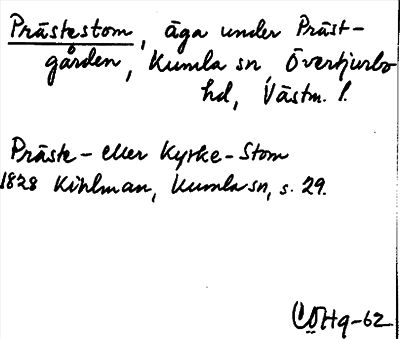 Prästestom, äga under Präst-
gården, Kumla sn, Övertjurbo
hd, Västm. l.
Präste- eller Kyrke-Stom
1828 Kihlman, Kumla sn, s. 29.
COHg-62